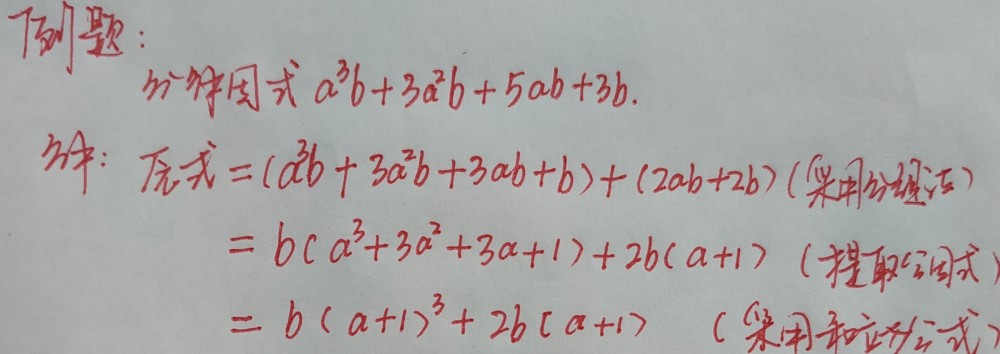 例题:
分解因式 a³b+3a²b+5ab+3b.
解: 原式=(a³b+3a²b+3ab+b)+(2ab+2b)(采用分组法)
=b(a³+3a²+3a+1)+2b(a+1) (提取公因式)
=b(a+1)³+2b(a+1) (采用和立方公式)